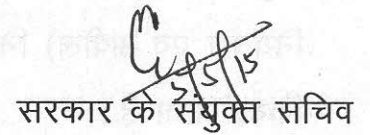 5/5/15
सरकार के संयुक्त सचिव